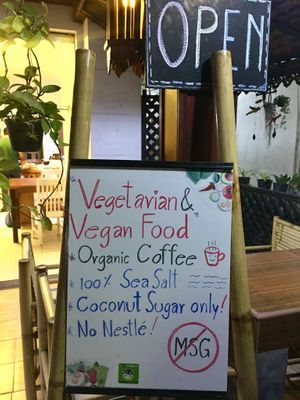 OPEN
"Vegetavian &
Vegan Food"
* Organic Coffee
* 100% Sea Salt
* Coconut Sugar only!
* No Nestlé!
MSG